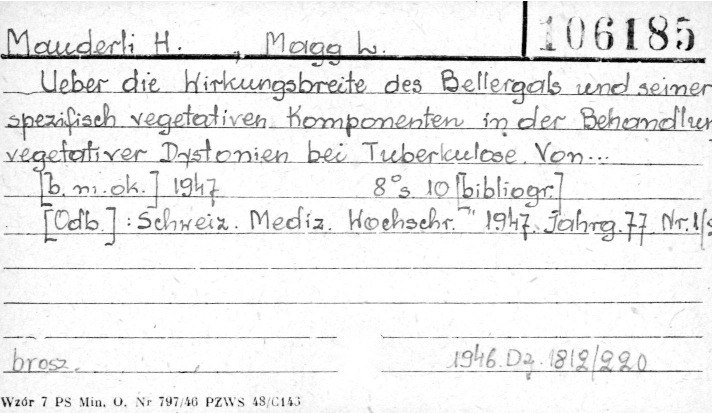 Mauderli H. , Magg W. 106185
Ueber die Wirkungsbreite des Bellergals und seiner
spezifisch vegetativen Komponenten in der Behandlun
vegetativer Dystonien bei Tuberkulose. Von...
[b. m. ok.] 1947 8° s. 10 [bibliogr.]
[Odb.]: Schweiz. Mediz. Wochschr." 1947. Jahrg. 77 Nr. 1/
brosz. 1946. Dz. 1812/220
Wzór 7 PS Min. O. Nr 797/46 PZWS 48/C143